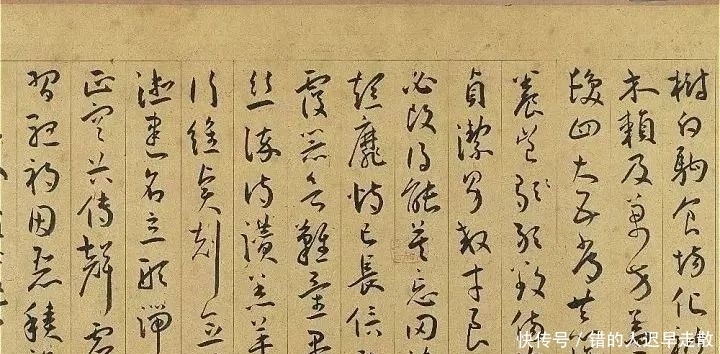 樹白駒食場化
木賴及萬方蓋
髮四大五常恭
養豈敢毀傷
貞潔男效才良
必改得能莫忘罔談
短靡恃己長信使
覆器欲難量墨悲
絲染詩讚羔羊
行維賢剋念
德建名立形端
正空谷傳聲虛
習聽禍因惡積福
快传号/错的人迟早走散